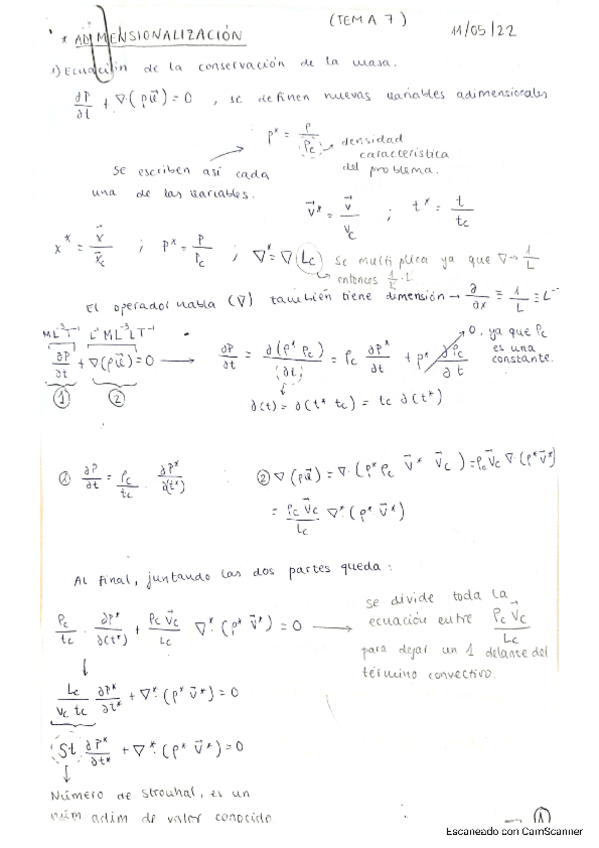 (TEMA 7)
* ADIMENSIONALIZACIÓN 11/05/22
1) Ecuación de la conservación de la masa.
∂ρ/∂t + ∇·(ρu⃗) = 0 , se definen nuevas variables adimensionales
ρ* = ρ/ρc → densidad característica del problema.
Se escriben así cada una de las variables.
v⃗* = v⃗/vc ; t* = t/tc
x* = x⃗/x⃗c ; p* = p/pc ; ∇* = ∇ Lc → se multiplica ya que ∇→ 1/L entonces 1/L · L
El operador nabla (∇) también tiene dimensión → ∂/∂x ≡ 1/L ≡ L⁻
ML⁻³T⁻¹ L⁻¹ML⁻³LT⁻¹
∂ρ/∂t + ∇(ρu⃗) = 0 → ∂ρ/∂t = ∂(ρ* ρc)/(∂t) = ρc ∂ρ*/∂t + ρ* ∂ρc/∂t → 0, ya que ρc es una constante.
① ②
∂(t) = ∂(t* tc) = tc ∂(t*)
① ∂ρ/∂t = ρc/tc · ∂ρ*/∂(t*) ② ∇(ρu⃗) = ∇·(ρ* ρc v⃗* v⃗c) = ρc v⃗c ∇·(ρ* v⃗*)
= ρc v⃗c/Lc ∇*·(ρ* v⃗*)
Al final, juntando las dos partes queda:
ρc/tc · ∂ρ*/∂(t*) + ρc v⃗c/Lc ∇*·(ρ* v⃗*) = 0 → se divide toda la ecuación entre ρc v⃗c/Lc
para dejar un 1 delante del
término convectivo.
Lc/(vc tc) ∂ρ*/∂t* + ∇*·(ρ* v⃗*) = 0
St ∂ρ*/∂t* + ∇*·(ρ* v⃗*) = 0
Número de Strouhal, es un
núm adim de valor conocido
①
Escaneado con CamScanner